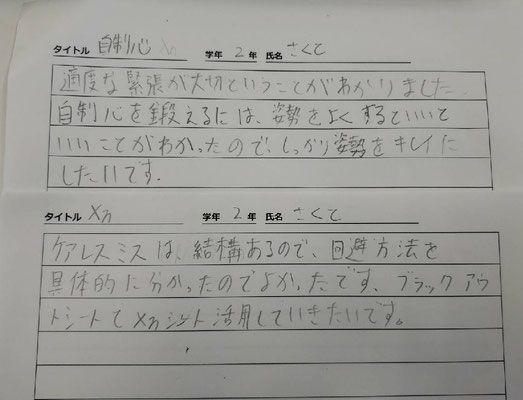 タイトル 自制心 学年 2 年 氏名 さくと
適度な緊張が大切ということがわかりました。
自制心を鍛えるには、姿勢をよくするといいと
いいことがわかったので、しっかり姿勢をキレイに
したいです。
タイトル メタ 学年 2 年 氏名 さくと
ケアレスミスは、結構あるので、回避方法を
具体的に分かったのでよかったです、ブラックアウ
トシートとメタシート活用していきたいです。